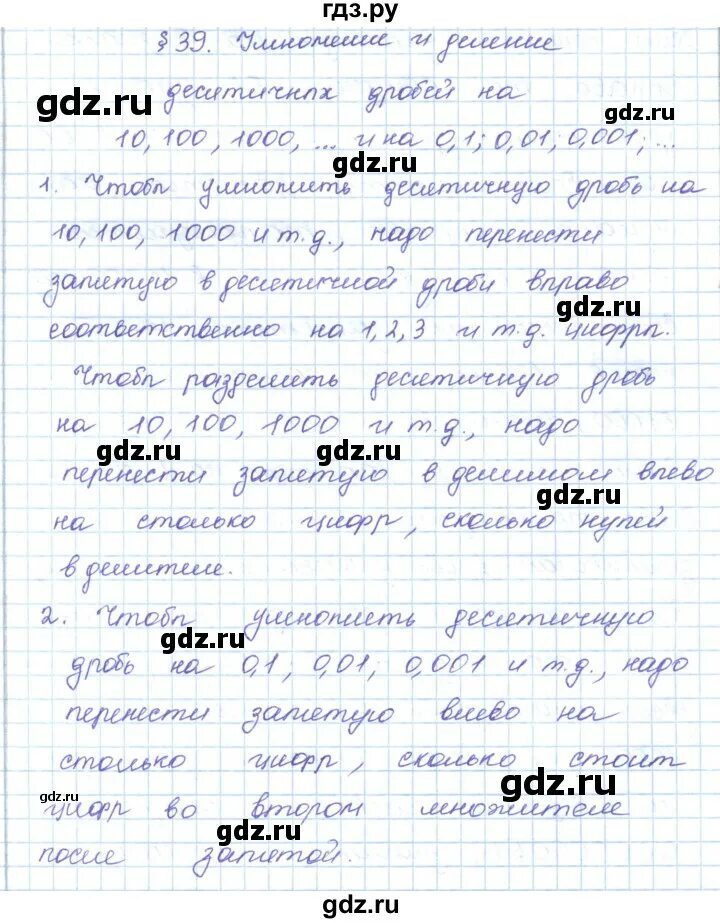 гдз.ру
§ 39. Умножение и деление
десятичных дробей на
10, 100, 1000, ... и на 0,1; 0,01; 0,001; ...
1. Чтобы умножить десятичную дробь на
10, 100, 1000 и т.д., надо перенести
запятую в десятичной дроби вправо
соответственно на 1, 2, 3 и т.д. цифры.
Чтобы разделить десятичную дробь
на 10, 100, 1000 и т.д., надо
перенести запятую в делимом влево
на столько цифр, сколько нулей
в делителе.
2. Чтобы умножить десятичную
дробь на 0,1; 0,01; 0,001 и т.д., надо
перенести запятую влево на
столько цифр, сколько стоит
цифр во втором множителе
после запятой.
gdz.ru
gdz.ru
gdz.ru
gdz.ru
gdz.ru
gdz.ru
gdz.ru
gdz.ru
gdz.ru
gdz.ru
gdz.ru
gdz.ru
gdz.ru